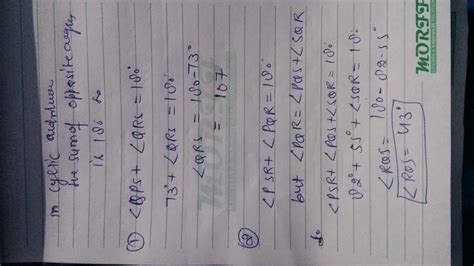 in cyclic
the sum of opposite angles
is 180 so
① ∠QPS + ∠QRS = 180
73° + ∠QRS = 180
∠QRS = 180 - 73°
= 107
② ∠PSR + ∠PQR = 180
but ∠PQR = ∠PQS + ∠SQR
so
∠PSR + ∠PQS + ∠SQR = 180
82° + 55° + ∠SQR = 180
∠RQS = 180 - 82 - 55
∠RQS = 43°
MORIFF